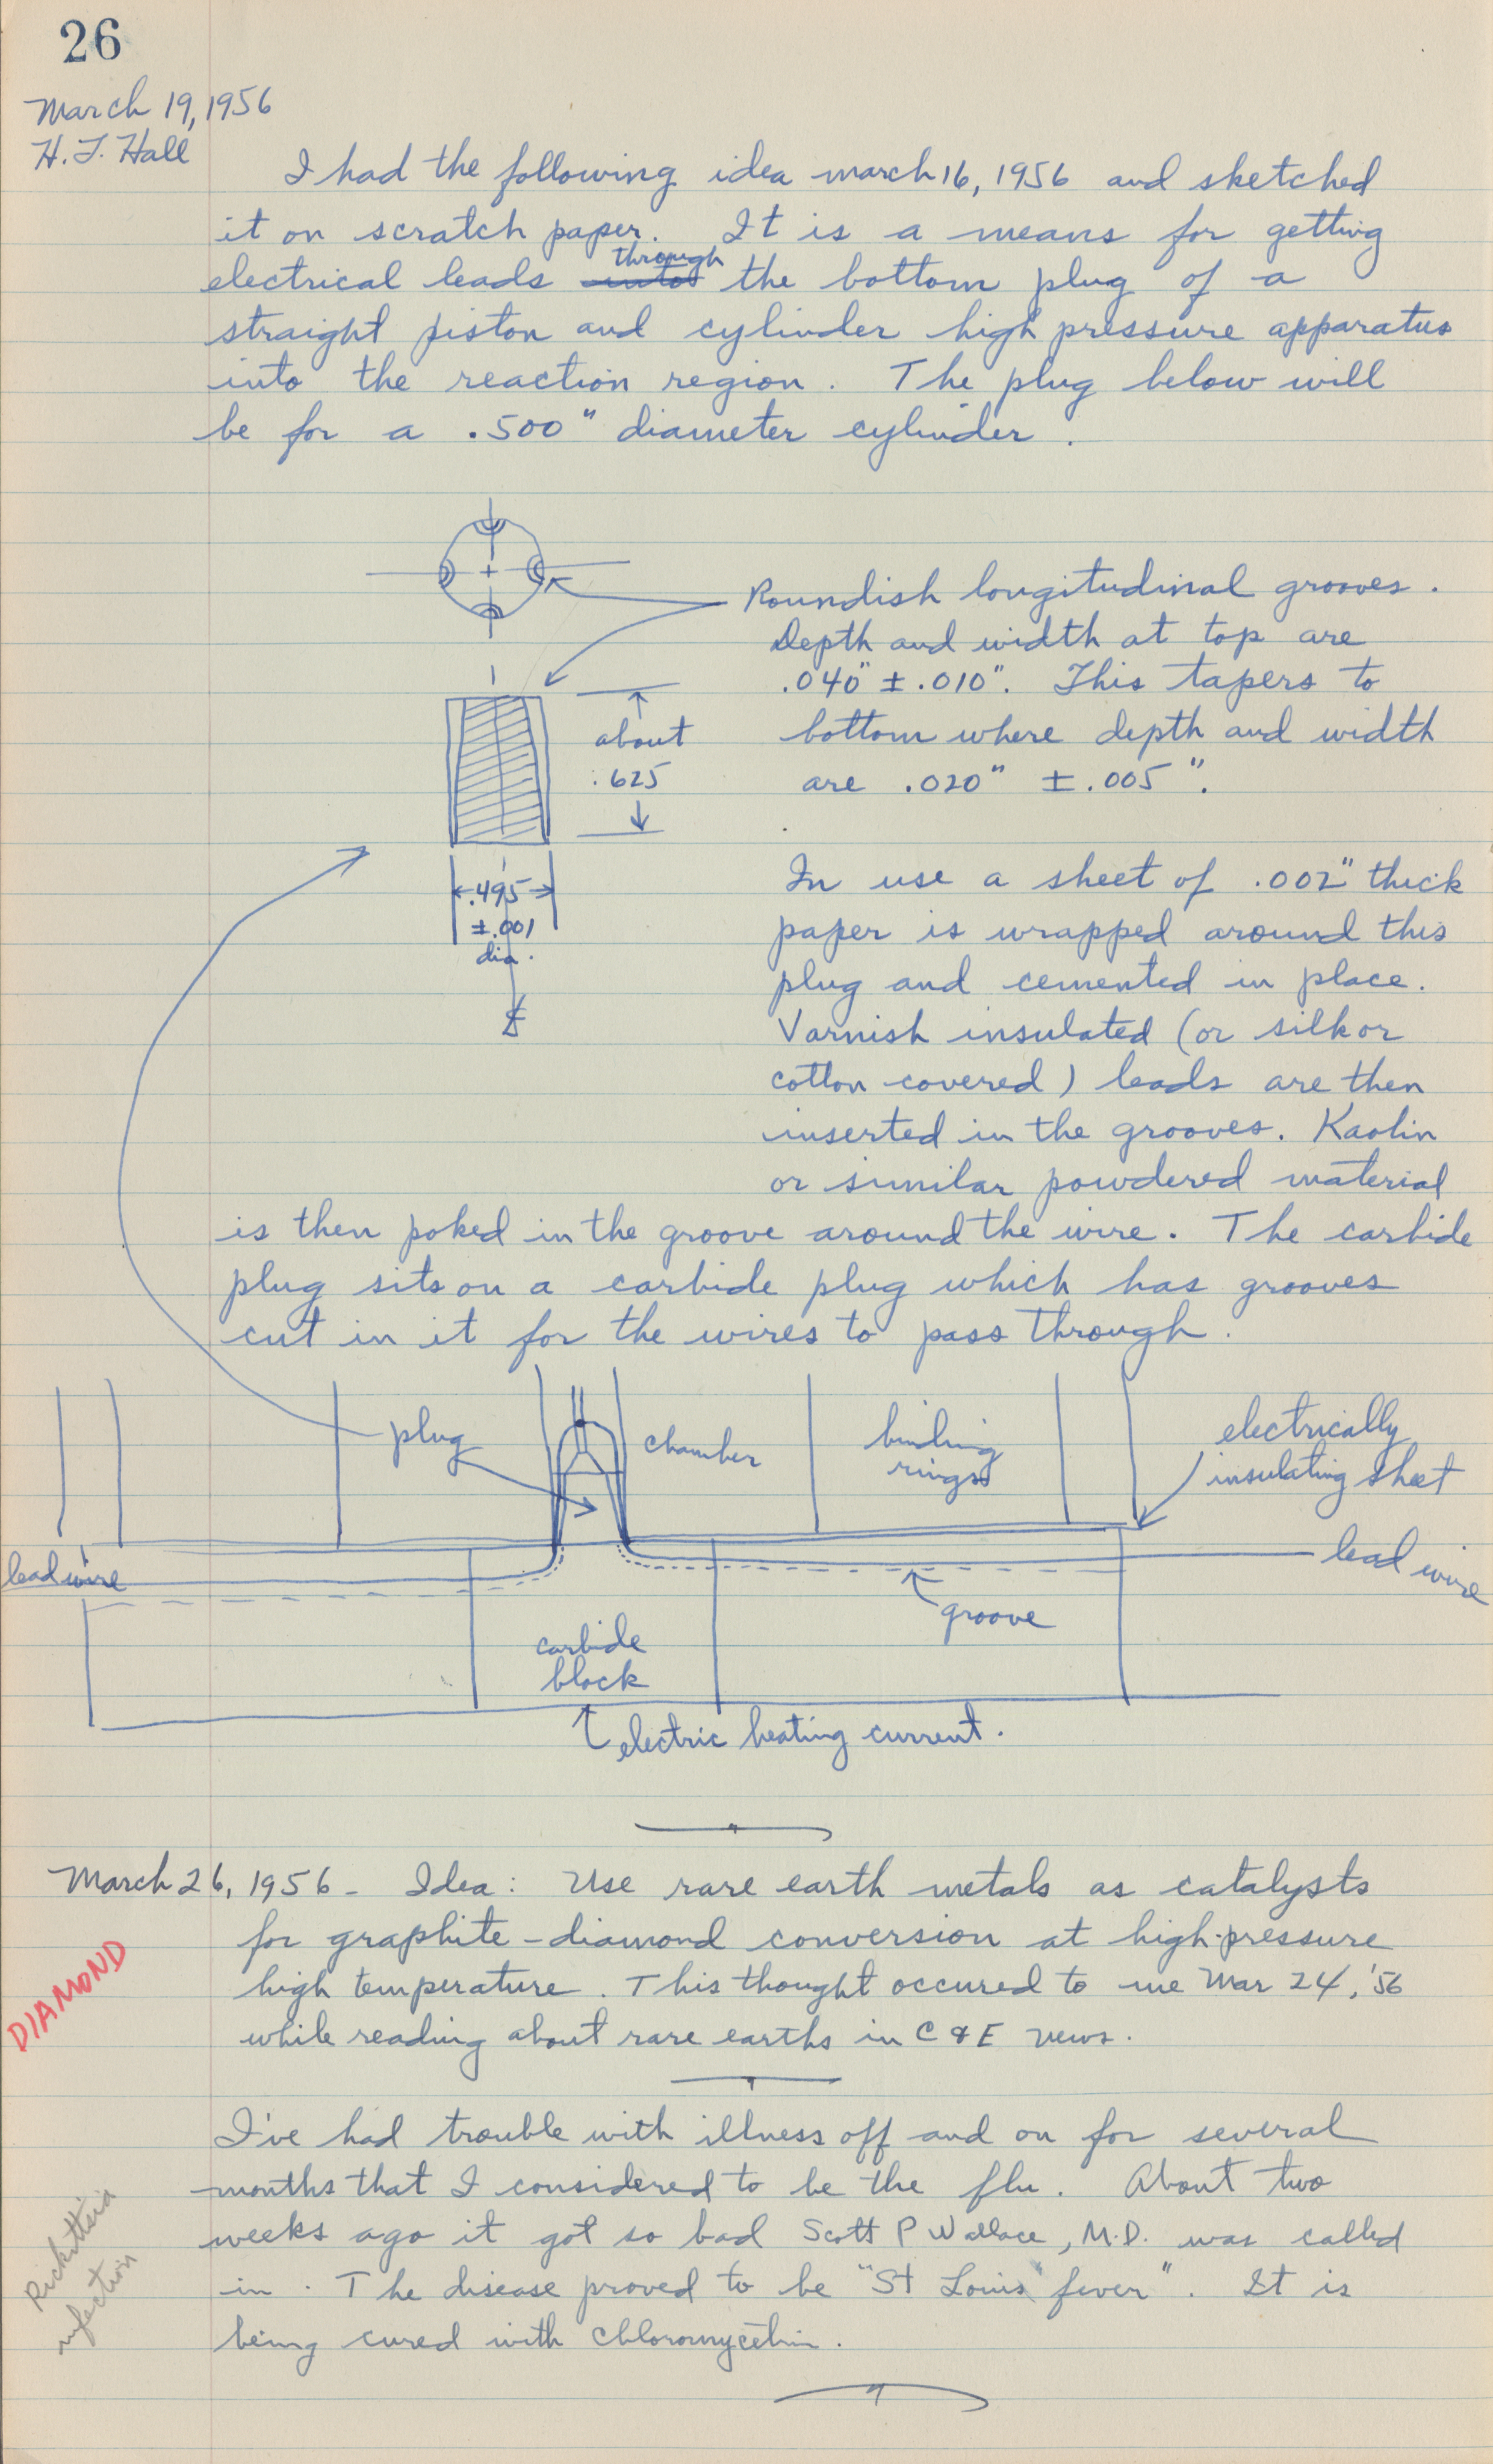 26
March 19, 1956
H. T. Hall
I had the following idea march 16, 1956 and sketched
it on scratch paper. It is a means for getting
through
electrical leads into the bottom plug of a
straight piston and cylinder high pressure apparatus
into the reaction region. The plug below will
be for a .500" diameter cylinder.
Roundish longitudinal grooves.
Depth and width at top are
.040" ± .010". This tapers to
bottom where depth and width
are .020" ± .005".
about
.625
.495
±.001
dia.
In use a sheet of .002" thick
paper is wrapped around this
plug and cemented in place.
Varnish insulated (or silk or
cotton covered) leads are then
inserted in the grooves. Kaolin
or similar powdered material
is then poked in the groove around the wire. The carbide
plug sits on a carbide plug which has grooves
cut in it for the wires to pass through.
plug
chamber
binding
rings
electrically
insulating sheet
lead wire
lead wire
groove
carbide
block
electric heating current.
March 26, 1956 - Idea: Use rare earth metals as catalysts
for graphite-diamond conversion at high-pressure
DIAMOND
high temperature. This thought occured to me Mar 24, '56
while reading about rare earths in C & E news.
I've had trouble with illness off and on for several
months that I considered to be the flu. About two
weeks ago it got so bad Scott P Wallace, M.D. was called
in. The disease proved to be "St Louis fever". It is
being cured with chloromycetin.
Rickettsia
infection